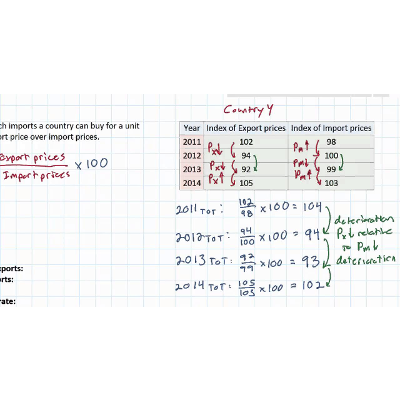 Country Y
ch imports a country can buy for a unit
ort price over import prices.
Year Index of Export prices Index of Import prices
2011 102 98
Px↓ Pm↑
2012 94 100
Px↓ Pm↓
2013 92 99
Px↑ Pm↑
2014 105 103
Export prices
Import prices
× 100
2011 TOT: 102/98 × 100 = 104
2012 TOT: 94/100 × 100 = 94
2013 TOT: 92/99 × 100 = 93
2014 TOT: 105/103 × 100 = 102
deterioration
Px↓ relative
to Pm↓
deterioration
xports:
orts:
rate: